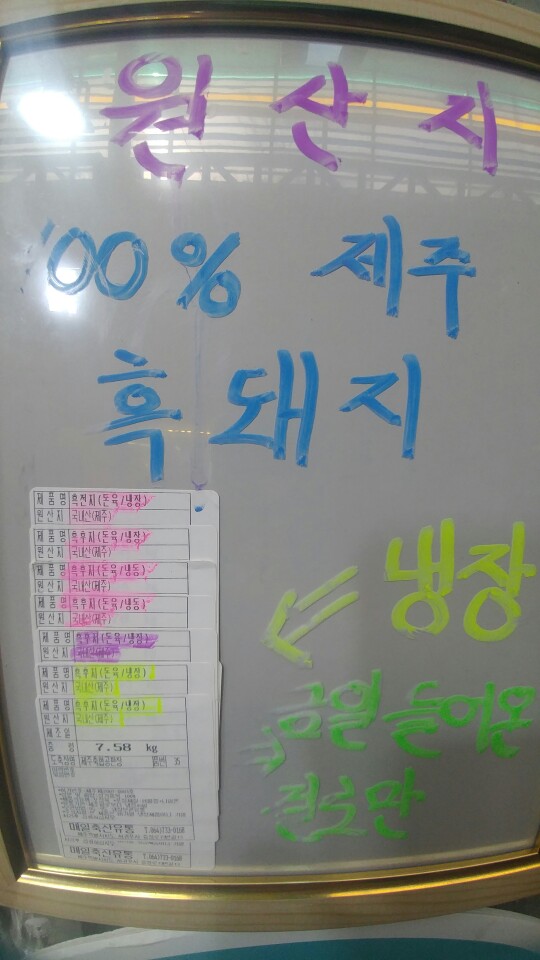 원산지
100% 제주
흑돼지
냉장
금일 들어온
재료만
제품명 흑전지(돈육/냉장)
원산지 국내산(제주)
제품명 흑후지(돈육/냉장)
원산지 국내산(제주)
제품명 흑후지(돈육/냉동)
원산지 국내산(제주)
제품명 흑후지(돈육/냉동)
원산지 국내산(제주)
제품명 흑후지(돈육/냉장)
원산지 국내산(제주)
제품명 흑후지(돈육/냉장)
원산지 국내산(제주)
제품명 흑후지(돈육/냉장)
원산지 국내산(제주)
제조일
중량 7.58 kg
도축장명
매일축산유통
매일축산유통